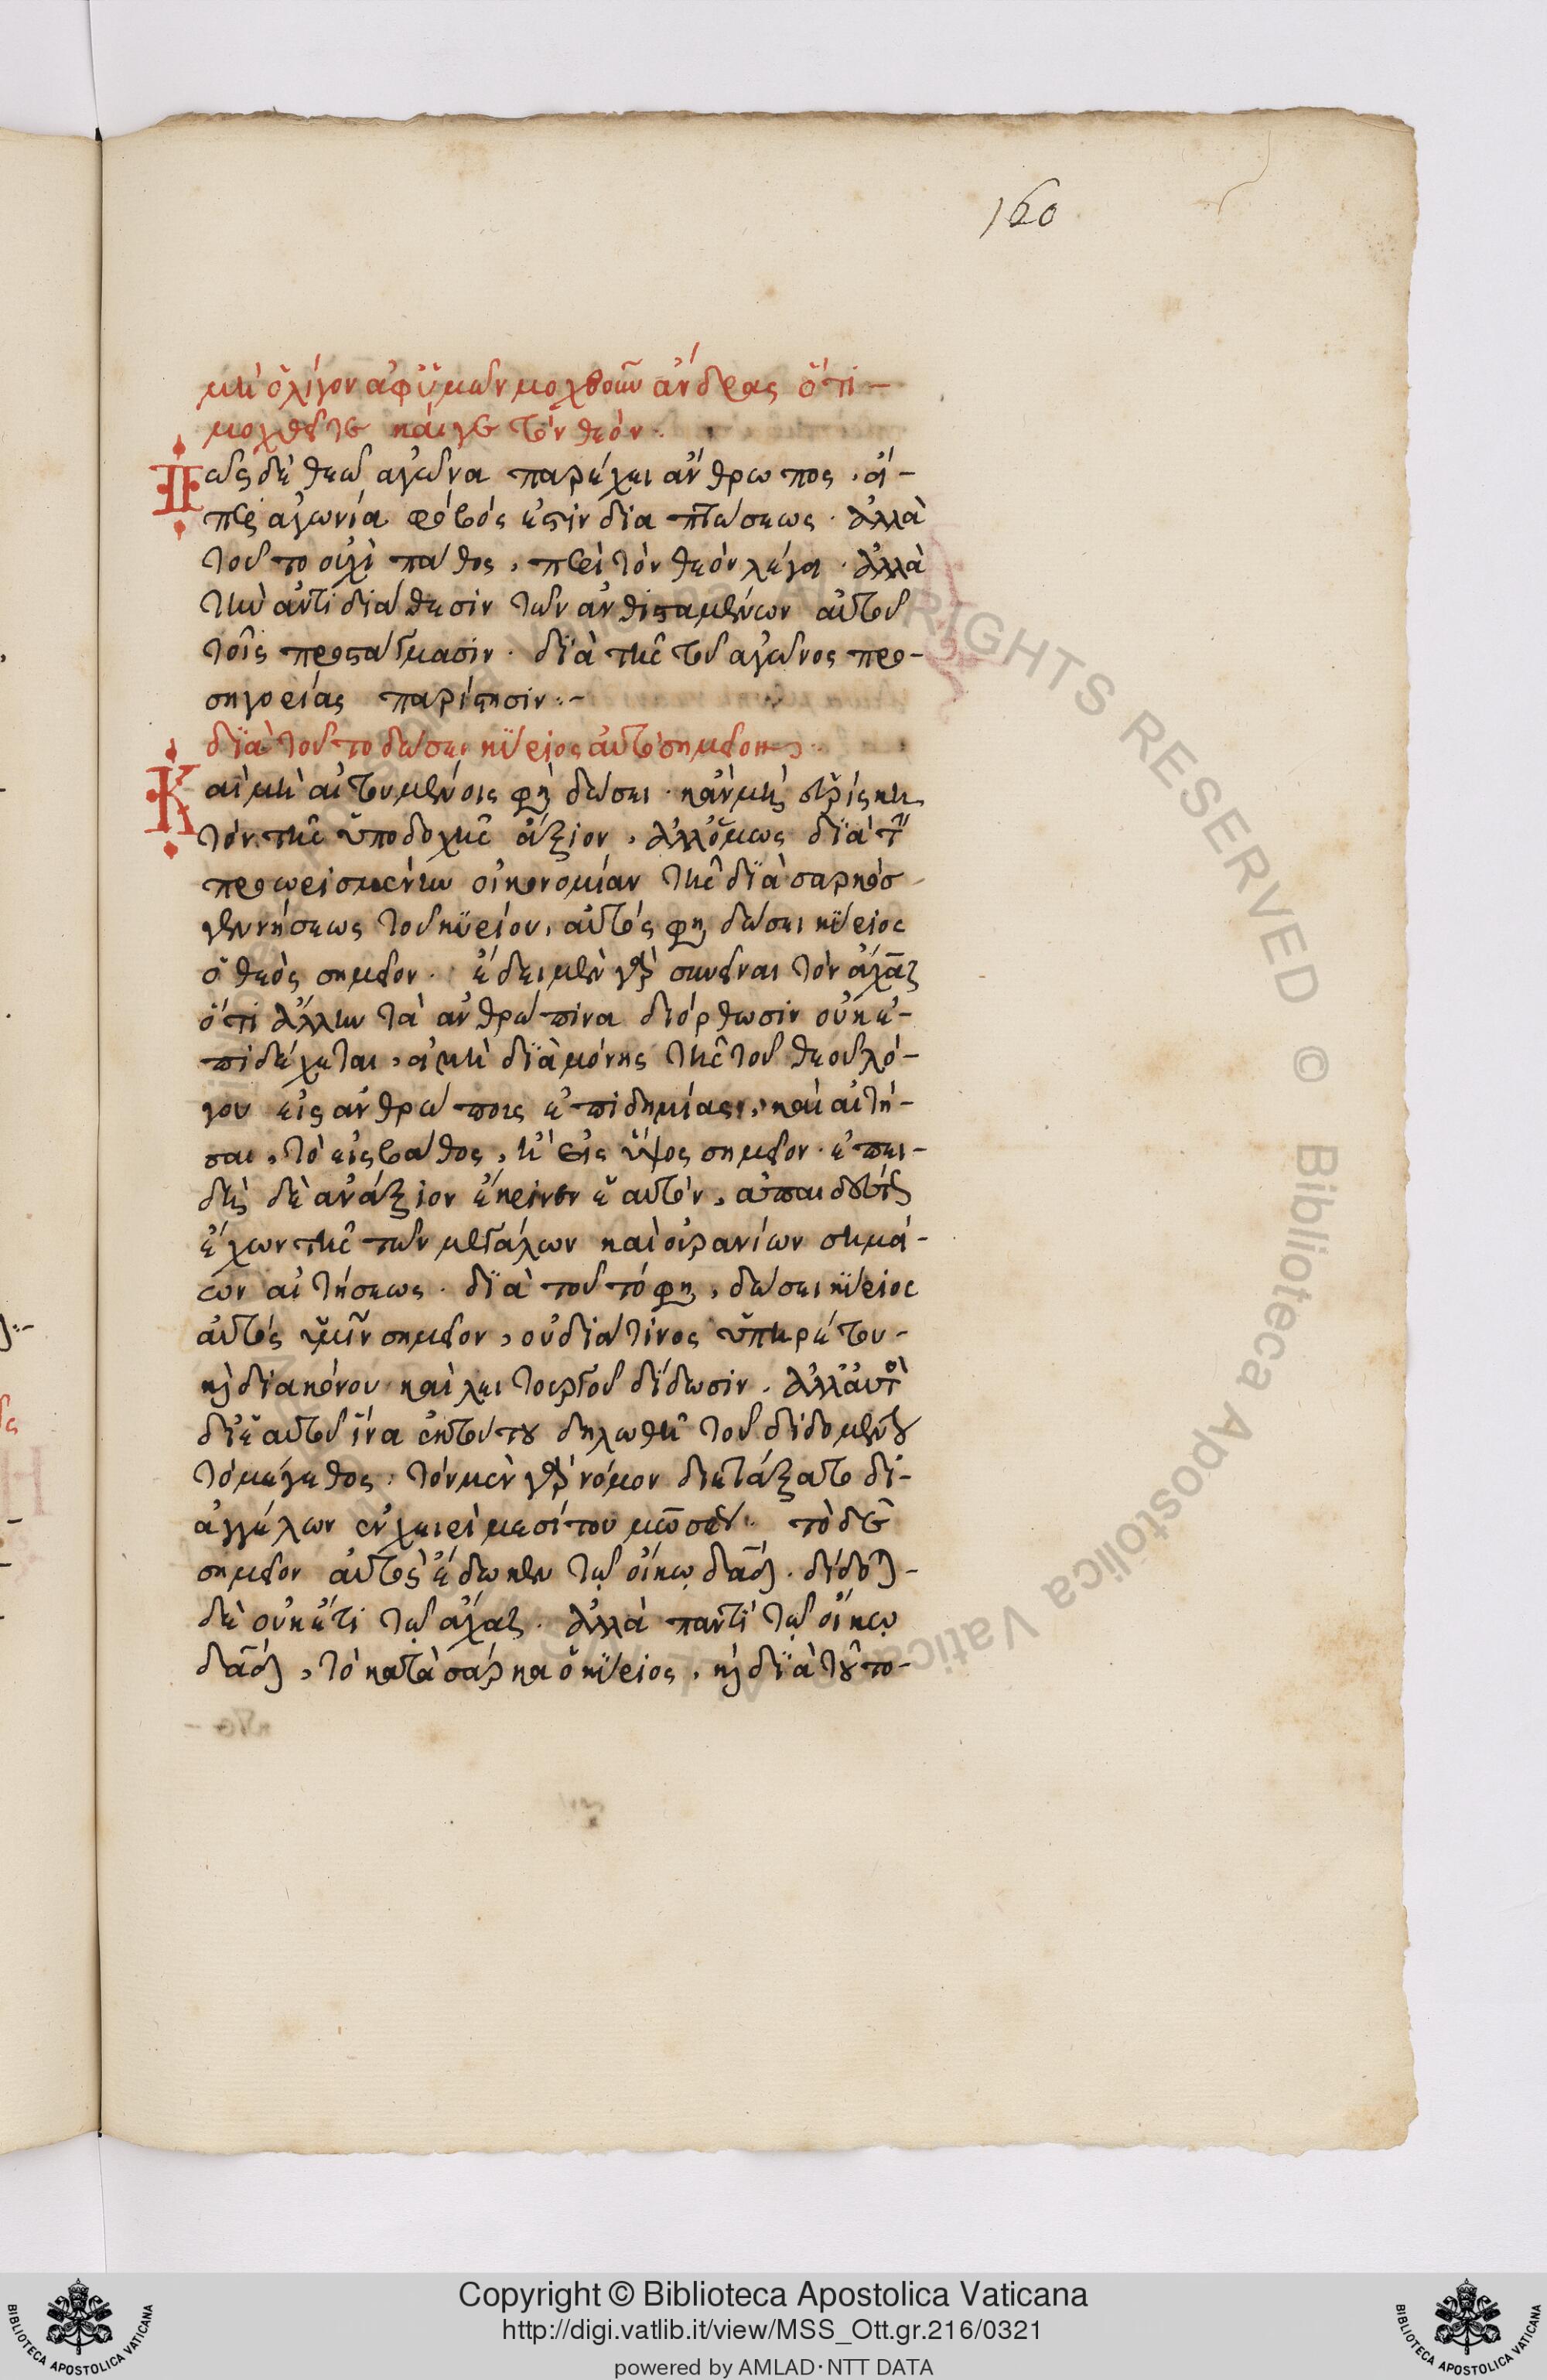 160
μὴ ὀλίγον ἀφ' ὑμῶν μοχθεῖν ἄνδρας ὅτι -
μοχθεῖτε κάιγε τὸν θεόν.
Πῶς δὲ θεῶ ἀγῶνα παρέχει ἄνθρωπος. εἴ -
περ ἀγωνία φόβός ἐστιν διαπτώσεως. ἀλλὰ
τοῦτο οὐχὶ πάθος, περὶ τὸν θεὸν λέγει. ἀλλὰ
τὴν ἀντιδιάθεσιν τῶν ἀνθισταμένων αὐτοῦ
τοῖς προστάγμασιν. διὰ τῆς τοῦ ἀγῶνος προ -
σηγορίας παρίστησιν :-
διὰ τοῦτο δώσει κύριος αὐτὸς σημεῖον
Καὶ μὴ αἰτουμένοις φη δώσει. κἂν μὴ εὑρίσκη
τὸν τῆς ὑποδοχῆς ἄξιον, ἀλλ' ὅμως διὰ τὴν
προωρισμένην οἰκονομίαν τῆς διὰ σαρκὸς
γεννήσεως τοῦ κυρίου, αὐτός φη δώσει κύριος
ὁ θεὸς σημεῖον. ἔδει μὲν γὰρ συνεῖναι τὸν ἄχαζ
ὅτι ἄλλην τὰ ἀνθρώπινα διόρθωσιν οὐκ ἐ -
πιδέχεται, εἰ μὴ διὰ μόνης τῆς τοῦ θεοῦ λό -
γου εἰς ἀνθρώποις ἐπιδημίας, καὶ αἰτῆ -
σαι, τὸ εἰς βάθος, ἢ εἰς ὕψος σημεῖον. ἐπει -
δὴ δὲ ἀνάξιον ἔκρινεν ἑαυτὸν, ἀπαιδεύτως
ἔχων τῆς τῶν μεγάλων καὶ οὐρανίων σημεί -
ων αἰτήσεως. διὰ τοῦτό φη, δώσει κύριος
αὐτὸς ὑμῖν σημεῖον, οὐ διά τινος ὑπηρέτου -
καὶ διακόνου καὶ λειτουργοῦ δίδωσιν. ἀλλ' αὐτὸς
δι' ἑαυτοῦ ἵνα ἐκ τούτου δηλωθῆ τοῦ διδομένου
τὸ μέγεθος. τὸν μὲν γὰρ νόμον διετάξατο δι' -
ἀγγέλων ἐν χειρὶ μεσίτου μωσέως. τὸ δὲ
σημεῖον αὐτὸς ἔδωκεν τῶ οἴκω δαδ. δίδοται -
δὲ οὐκέτι τῶ ἄχαζ. ἀλλὰ παντὶ τῶ οἴκω
δαδ, τὸ κατὰ σάρκα ὁ κύριος, καὶ διὰ τοῦτο -
Copyright © Biblioteca Apostolica Vaticana
http://digi.vatlib.it/view/MSS_Ott.gr.216/0321
powered by AMLAD·NTT DATA